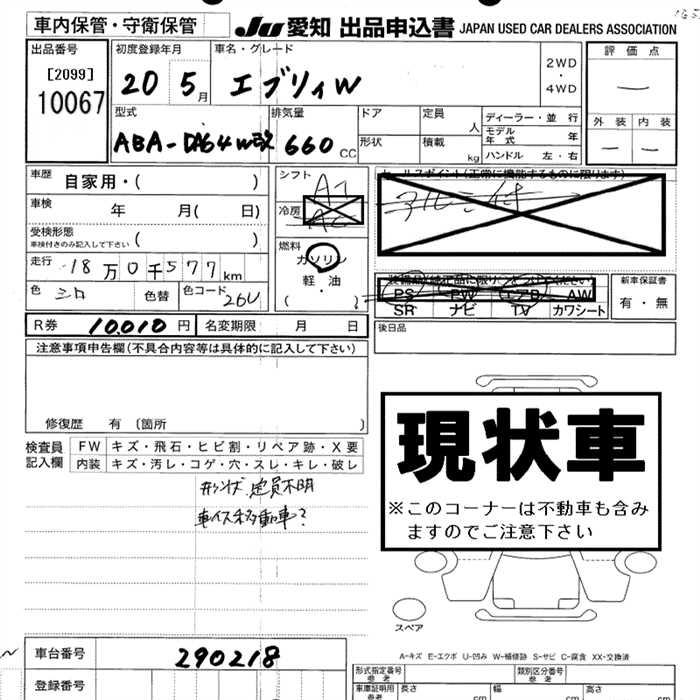 車内保管・守衛保管
JU 愛知 出品申込書 JAPAN USED CAR DEALERS ASSOCIATION
出品番号
[2099]
10067
初度登録年月
20 5月
車名・グレード
エブリィW
2WD
・
4WD
評価点
外装 内装
型式
ABA-DA64W改
排気量
660 CC
ドア
形状
定員
人
積載
kg
ディーラー・並行
モデル年式 年
ハンドル 左・右
車歴 自家用・( )
車検 年 月( 日)
受検形態
車検付きのみ記入して下さい ( )
走行 18万0千577km
色 シロ 色替 色コード 26U
シフト AT
冷房 AC
燃料
ガソリン
軽・油
( )
セールスポイント(正常に機能するものに限ります)
装備品(純正品に限りマルをしてください)
PS PW エアB AW
SR ナビ TV カワシート
新車保証書
有・無
R券 10,010円 名変期限 月 日
後日品
注意事項申告欄(不具合内容等は具体的に記入して下さい)
修復歴 有 〔箇所 〕
検査員記入欄
FW キズ・飛石・ヒビ割・リペア跡・X要
内装 キズ・汚レ・コゲ・穴・スレ・キレ・破レ
形状、定員不明
車イス移動車?
現状車
※このコーナーは不動車も含みますのでご注意下さい
スペア
A-キズ E-エクボ U-凹み W-補修跡 S-サビ C-腐食 XX-交換済
車台番号 290218
登録番号
形式指定番号 参考
類別区分番号 参考
車庫証明用 参考
長さ cm
幅 cm
高さ cm